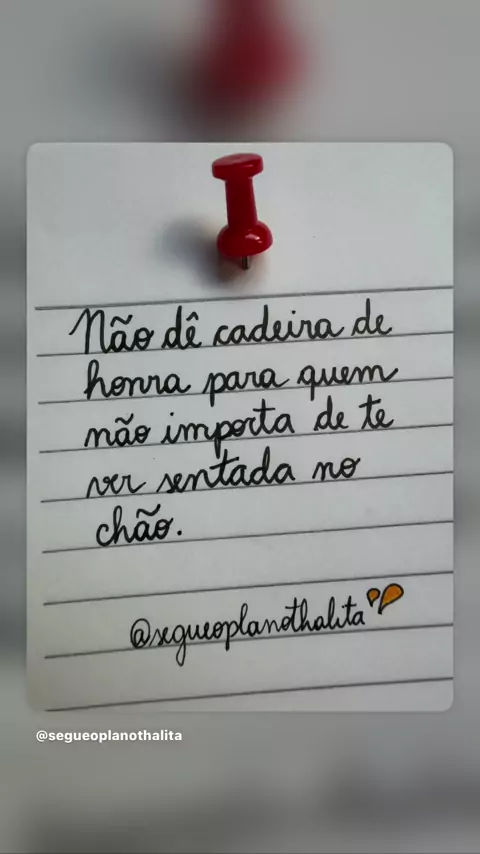 Não dê cadeira de
honra para quem
não importa de te
ver sentada no
chão.
@segueoplanothalita
@segueoplanothalita